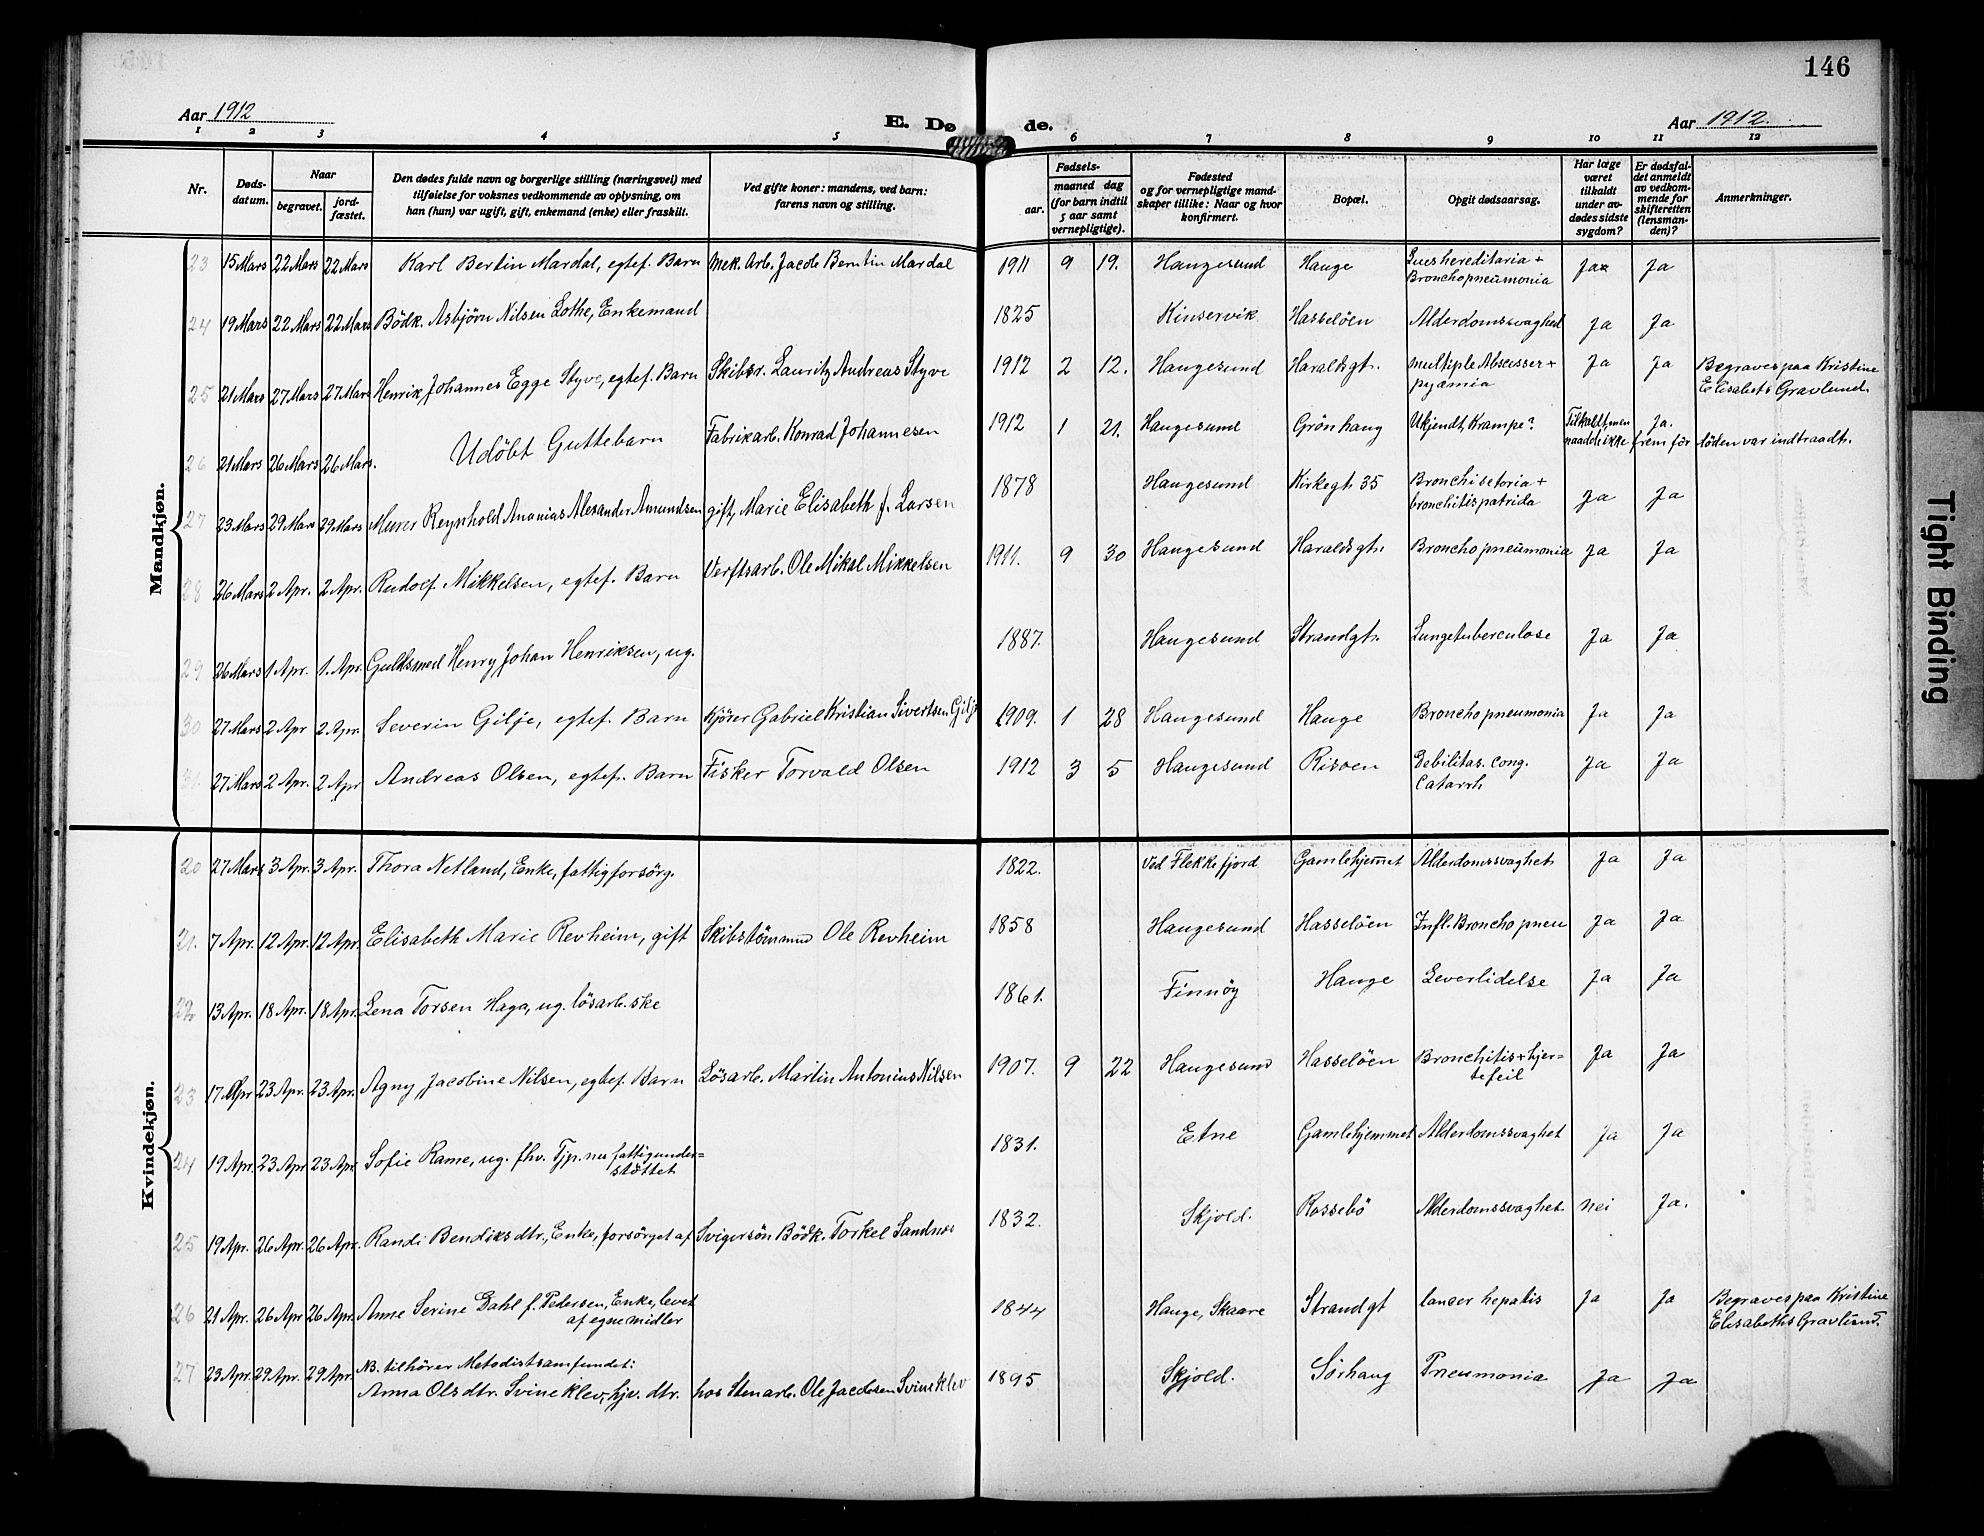 146
Aar 1912
E. Døde.
Aar 1912.
1 2 3 4 5 6 7 8 9 10 11 12
Nr.
Døds-datum.
Naar
begravet.
jord-fæstet.
Den dødes fulde navn og borgerlige stilling (næringsvei) med
tilføielse for voksnes vedkommende av oplysning, om
han (hun) var ugift, gift, enkemand (enke) eller fraskilt.
Ved gifte koner: mandens, ved barn:
farens navn og stilling.
Fødsels-
aar.
maaned dag
(for barn indtil
5 aar samt
vernepligtige).
Fødested
og for vernepligtige mand-
skaper tillike: Naar og hvor
konfirmert.
Bopæl.
Opgit dødsaarsag.
Har læge
været
tilkaldt
under av-
dødes sidste
sygdom?
Er dødsfal-
det anmeldt
av vedkom-
mende for
skifteretten
(lensman-
den)?
Anmerkninger.
Mandkjøn.
23 15 Mars 22 Mars 22 Mars Karl Bertin Mardal, egtef. Barn Mek. Arb. Jacob Berntin Mardal 1911 9 19. Haugesund Hauge Lues hereditaria + Ja Ja
Bronchopneumonia
24 19 Mars 22 Mars 22 Mars Bödk. Asbjörn Nilsen Lothe, Enkemand 1825 Kinservik Hasselöen Alderdomssvaghed Ja Ja
25 21 Mars 27 Mars 27 Mars Henrik Johannes Egge Styve, egtef. Barn Skibsr. Lauritz Andreas Styve 1912 2 12. Haugesund Haraldsgt. multiple Abscesser + Ja Ja Begraves paa Kristine
pyæmia Elisabets Gravlund.
26 21 Mars 26 Mars 26 Mars. Udöbt Guttebarn Fabrikarb. Konrad Johannesen 1912 1 21. Haugesund Grönhaug Ukjendt, Krampe? Tilkaldt, men Ja.
naadde ikke frem för döden var indtraadt.
27 23 Mars 29 Mars 29 Mars Murer Reynhold Ananias Alexander Amundsen gift, Marie Elisabeth f. Larsen 1878 Haugesund Kirkegt. 35 Ja Ja
28 26 Mars 2 Apr. 2 Apr. Rudolf Mikkelsen, egtef. Barn Verftsarb. Ole Mikal Mikkelsen 1911. 9 30 Haugesund Haraldsgt. Bronchopneumonia Ja Ja
29 26 Mars 1 Apr. 1. Apr. Guldsmed Henry Johan Henriksen, ug. 1887. Haugesund Strandgt. Lungetuberculose Ja Ja
30 27 Mars 2 Apr 2 Apr. Severin Gilje, egtef. Barn Kjörer Gabriel Kristian Sivertsen Gilje 1909. 1 28 Haugesund Hauge Bronchopneumonia Ja Ja
31. 27 Mars 2 Apr. 2 Apr Andreas Olsen, egtef. Barn Fisker Torvald Olsen 1912 3 5 Haugesund Risöen Debilitas. cong. Ja Ja
Catarrh
Kvindekjøn.
20 27 Mars 3 Apr. 3 Apr. Thora Netland, Enke, fattigforsörg. 1822. Ved Flekkefjord Gamlehjemmet Alderdomssvaghet Ja Ja
21. 7 Apr. 12 Apr. 12 Apr. Elisabeth Marie Revheim, gift Skibstömmd Ole Revheim 1858 Haugesund Hasselöen Infl. Bronchopneu Ja Ja
22 13 Apr. 18 Apr. 18 Apr. Lena Torsen Haga, ug. lösarb.ske 1861. Finnöy Hauge Leverlidelse Ja Ja
23 17 Apr 23 Apr. 23 Apr. Agny Jacobine Nilsen, egtef. Barn Lösarb. Martin Antonius Nilsen 1907. 9 22 Haugesund Hasselöen Bronchitis + hjer= Ja Ja
tefeil
24 19 Apr. 23 Apr 23 Apr Sofie Rame, ug. fhv. Tjp. nu fattigunder= 1831. Etne Gamlehjemmet Alderdomssvaghet Ja Ja
stöttet
25 19 Apr. 26 Apr 26 Apr. Randi Bendiks dtr., Enke, forsörget af Svigersön Bödk. Torkel Sandnes 1832. Skjold. Rossebö Alderdomssvaghet. nei Ja.
26 21 Apr. 26 Apr 26 Apr. Anne Serine Dahl f. Pedersen, Enke, levet 1844 Hauge, Skaare Strandgt cancer hepatis Ja Ja Begraves paa Kristine
af egne midler Elisabeths Gravlund.
27 23 Apr. 29 Apr. 29 Apr. NB. tilhörer Metodistsamfundet:
Anna Olsdtr. Svineklev, hjv. dtr. hos Stenarb. Ole Jacobsen Svineklev 1895 Skjold. Sörhaug Pneumonia Ja Ja
Tight Binding